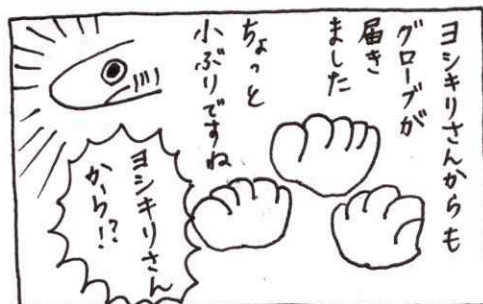 ヨシキリさんからも
グローブが
届き
ました
ちょっと
小ぶりですね
ヨシキリさん
から!?